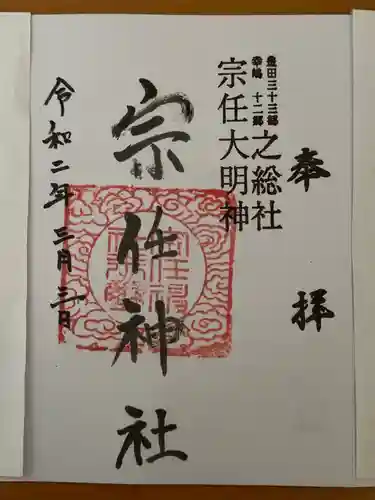 奉拝
豊田三十三郷
幸嶋十二郷
之総社
宗任大明神
宗任神社
令和二年三月三日